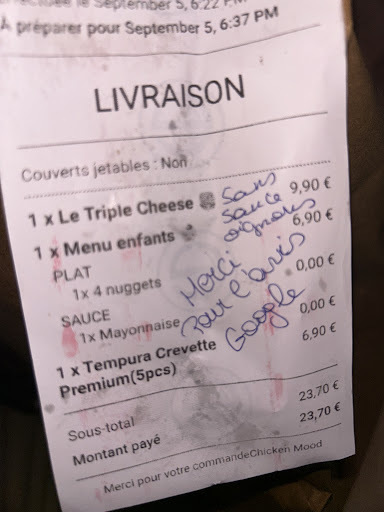 September 5, 6:22 PM
À préparer pour September 5, 6:37 PM
LIVRAISON
Couverts jetables : Non
1 x Le Triple Cheese 9,90 €
1 x Menu enfants 6,90 €
PLAT
1x 4 nuggets 0,00 €
SAUCE
1x Mayonnaise 0,00 €
1 x Tempura Crevette 6,90 €
Premium(5pcs)
Sous-total 23,70 €
Montant payé 23,70 €
Merci pour votre commandeChicken Mood
Sans
sauce
oignons
Merci
Pour l'avis
Google